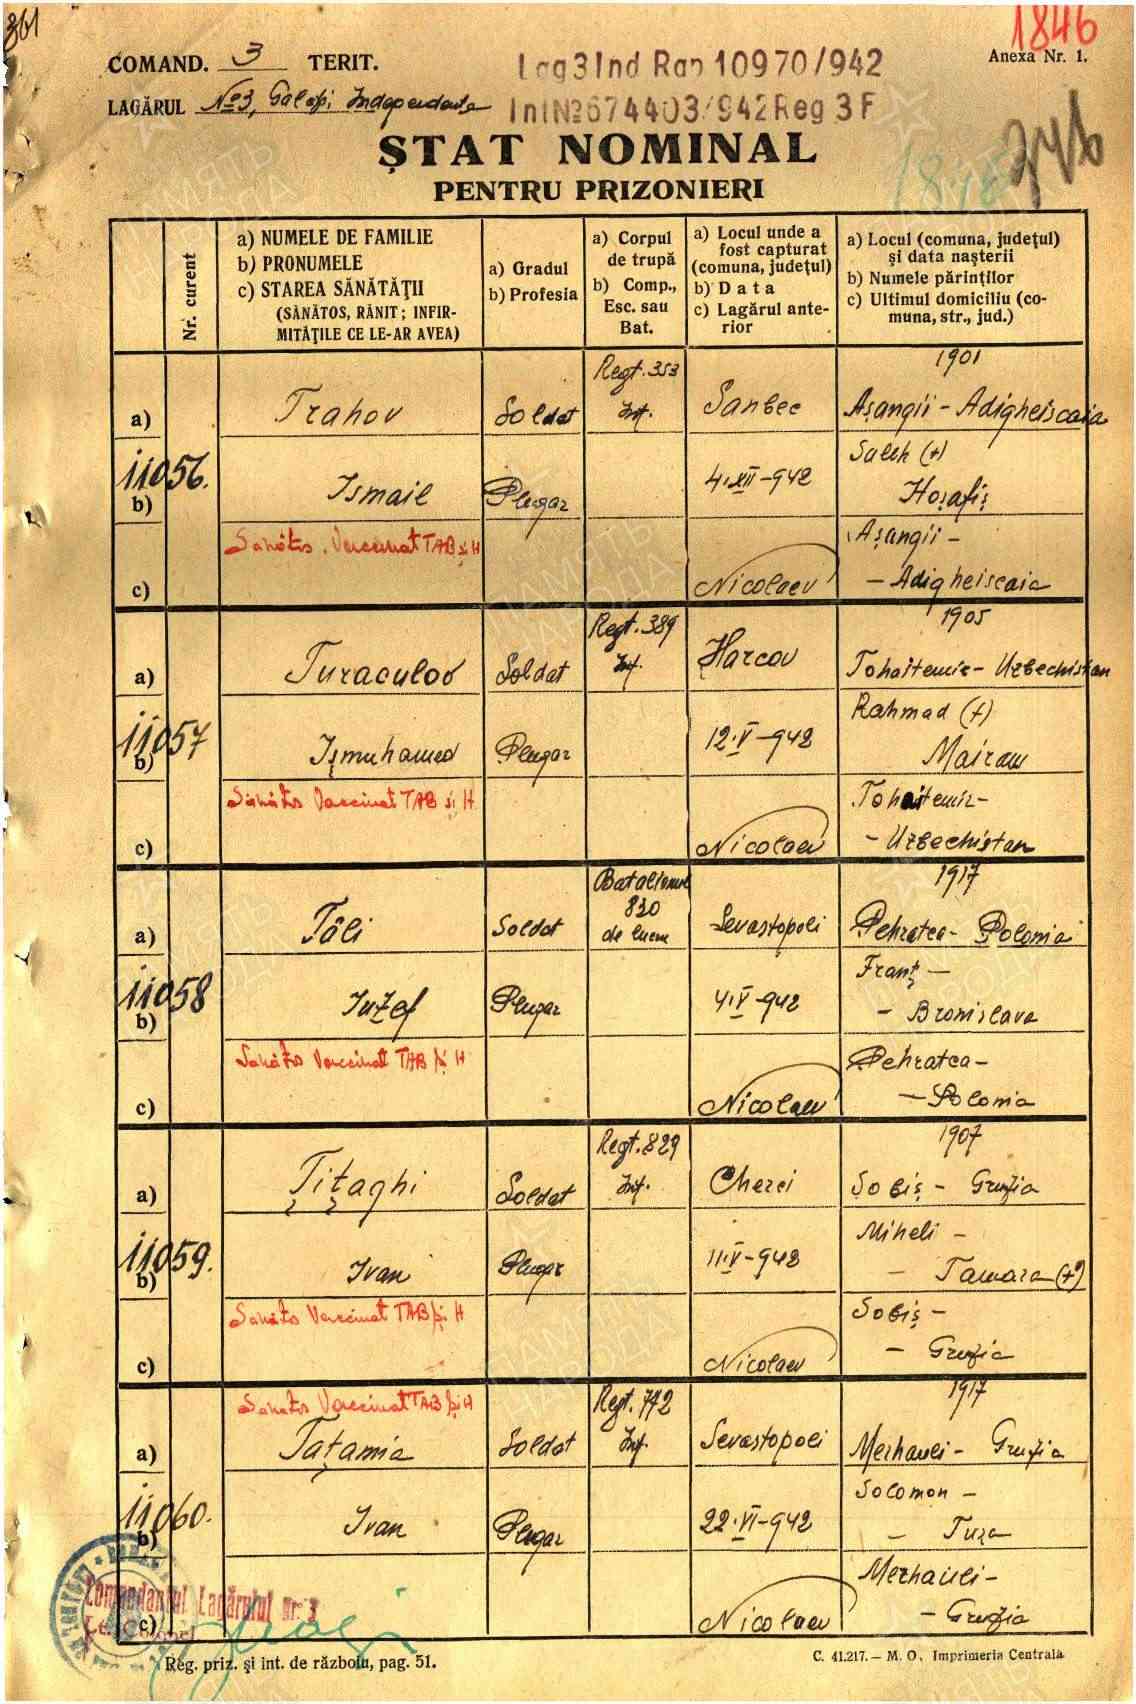 361
1846
COMAND. 3 TERIT.
Lag 3 Ind Rap 10970/942
Anexa Nr. 1.
LAGĂRUL No 3, Independența
Int № 674403/942 Reg 3 F
ȘTAT NOMINAL
1846
346
PENTRU PRIZONIERI
Nr. curent
a) NUMELE DE FAMILIE
b) PRONUMELE
c) STAREA SĂNĂTĂȚII
(SĂNĂTOS, RĂNIT; INFIR-
MITĂȚILE CE LE-AR AVEA)
a) Gradul
b) Profesia
a) Corpul
de trupă
b) Comp.,
Esc. sau
Bat.
a) Locul unde a
fost capturat
(comuna, județul)
b) Data
c) Lagărul ante-
rior
a) Locul (comuna, județul)
și data nașterii
b) Numele părinților
c) Ultimul domiciliu (co-
muna, str., jud.)
Regt. 353
1901
a) Trahov Soldat Inf. Sanbec Așangii - Adigheiscaia
11056.
b) Ismail Plugar 4.XII-942 Saleh (+)
Hoșafiș
Sănătos Vaccinat TAB și H
Așangii -
c) Nicolaev - Adigheiscaia
Regt. 389
1905
a) Turaculov Soldat Inf. Harcov Tohaitemir - Uzbechistan
11057
b) Ișmuhamed Plugar 12.V-942 Rahmad (+)
Mairam
Sănătos Vaccinat TAB și H
Tohaitemir -
c) Nicolaev - Uzbechistan
Batalionul
830
de lucru
1917
a) Tâli Soldat Sevastopoli Pehratca - Polonia
11058
b) Iuzef Plugar 4.V-942 Franț -
- Bronislava
Sănătos Vaccinat TAB și H
Pehratca -
c) Nicolaev - Polonia
Regt. 829
1907
a) Țițaghi Soldat Inf. Cherci Șobiș - Gruzia
11059.
b) Ivan Plugar 11.V-942 Miheli -
- Tamara (+)
Sănătos Vaccinat TAB și H
Sobiș -
c) Nicolaev - Gruzia
Sănătos Vaccinat TAB și H
Regt. 772
1917
a) Tațamia Soldat Inf. Sevastopoli Merhauli - Gruzia
11060.
b) Ivan Plugar 22.VI-942 Solomon -
- Tuza
Merhauli -
c) Nicolaev - Gruzia
Comandantul Lagărului nr. 3
Lt. Colonel
Reg. priz. și int. de războiu, pag. 51.
C. 41.217. — M. O., Imprimeria Centrală
ПАМЯТЬ НАРОДА